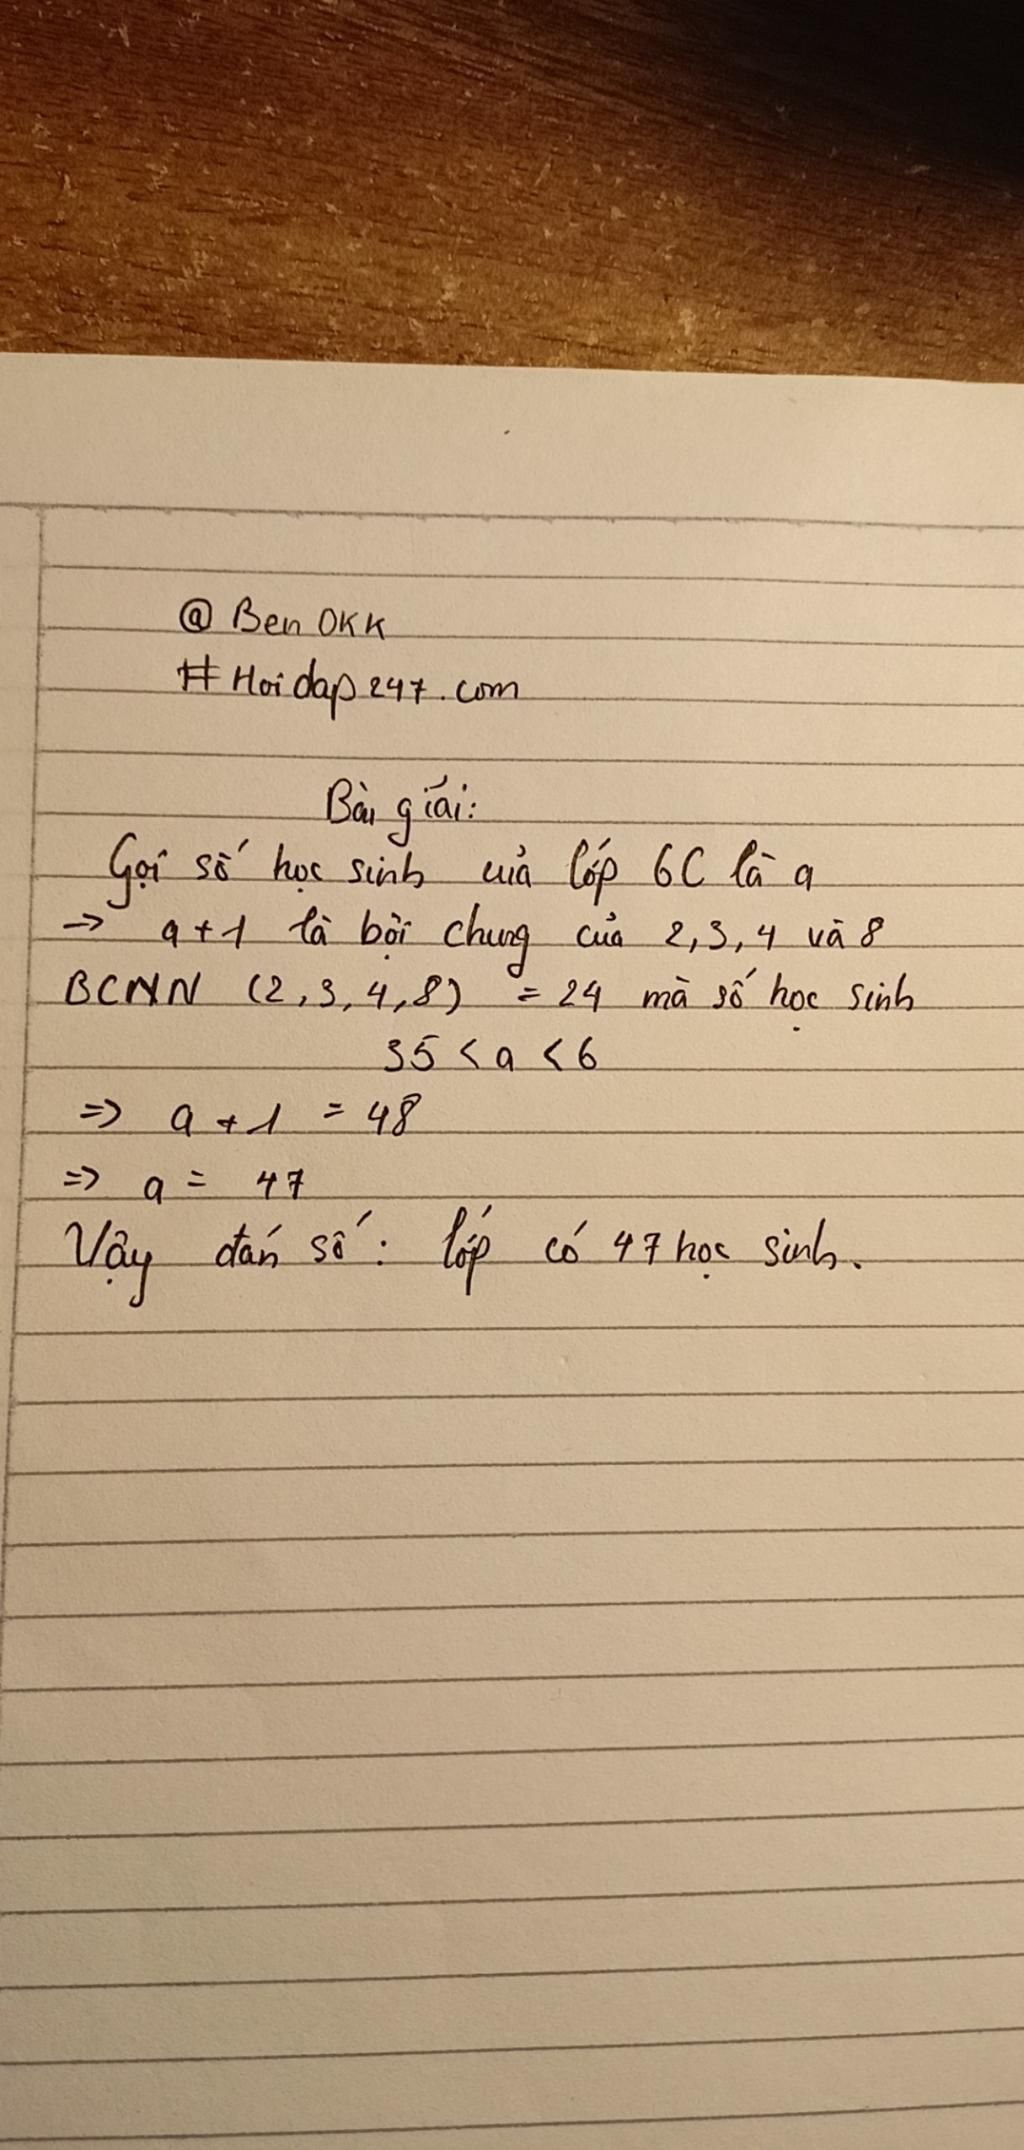 @ Ben OKK
# Hoidap247.com
Bài giải:
Gọi số học sinh của lớp 6C là a
→ a+1 là bội chung của 2,3,4 và 8
BCNN (2,3,4,8) = 24 mà số học sinh
35 < a < 6
=> a + 1 = 48
=> a = 47
Vậy đán số: lớp có 47 học sinh.